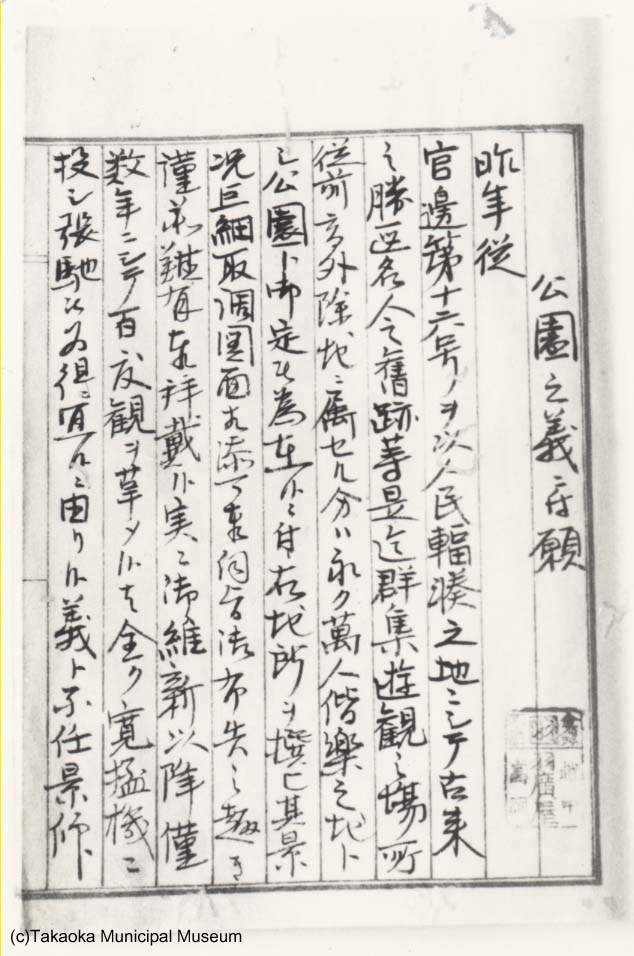 公園之義ニ付願
昨年従
官邊第十六号ノヲ以人民輻湊之地ニシテ古来
之勝区名人之舊跡等是迄群集遊観之場所
従前高外除地ニ属セル分ハ永ク萬人偕楽之地ト
シ公園ト御定可為在候ニ付右地所ヲ撰ヒ其景
况巨細取調図面相添可伺旨御布告之趣き
謹承難有奉拝戴候実ニ御維新以降僅
数年ニシテ百度観ヲ革メ候も全ク寛猛機ニ
投シ張馳其為得宜候ニ由リ候義ト不任景仰ト
(c)Takaoka Municipal Museum